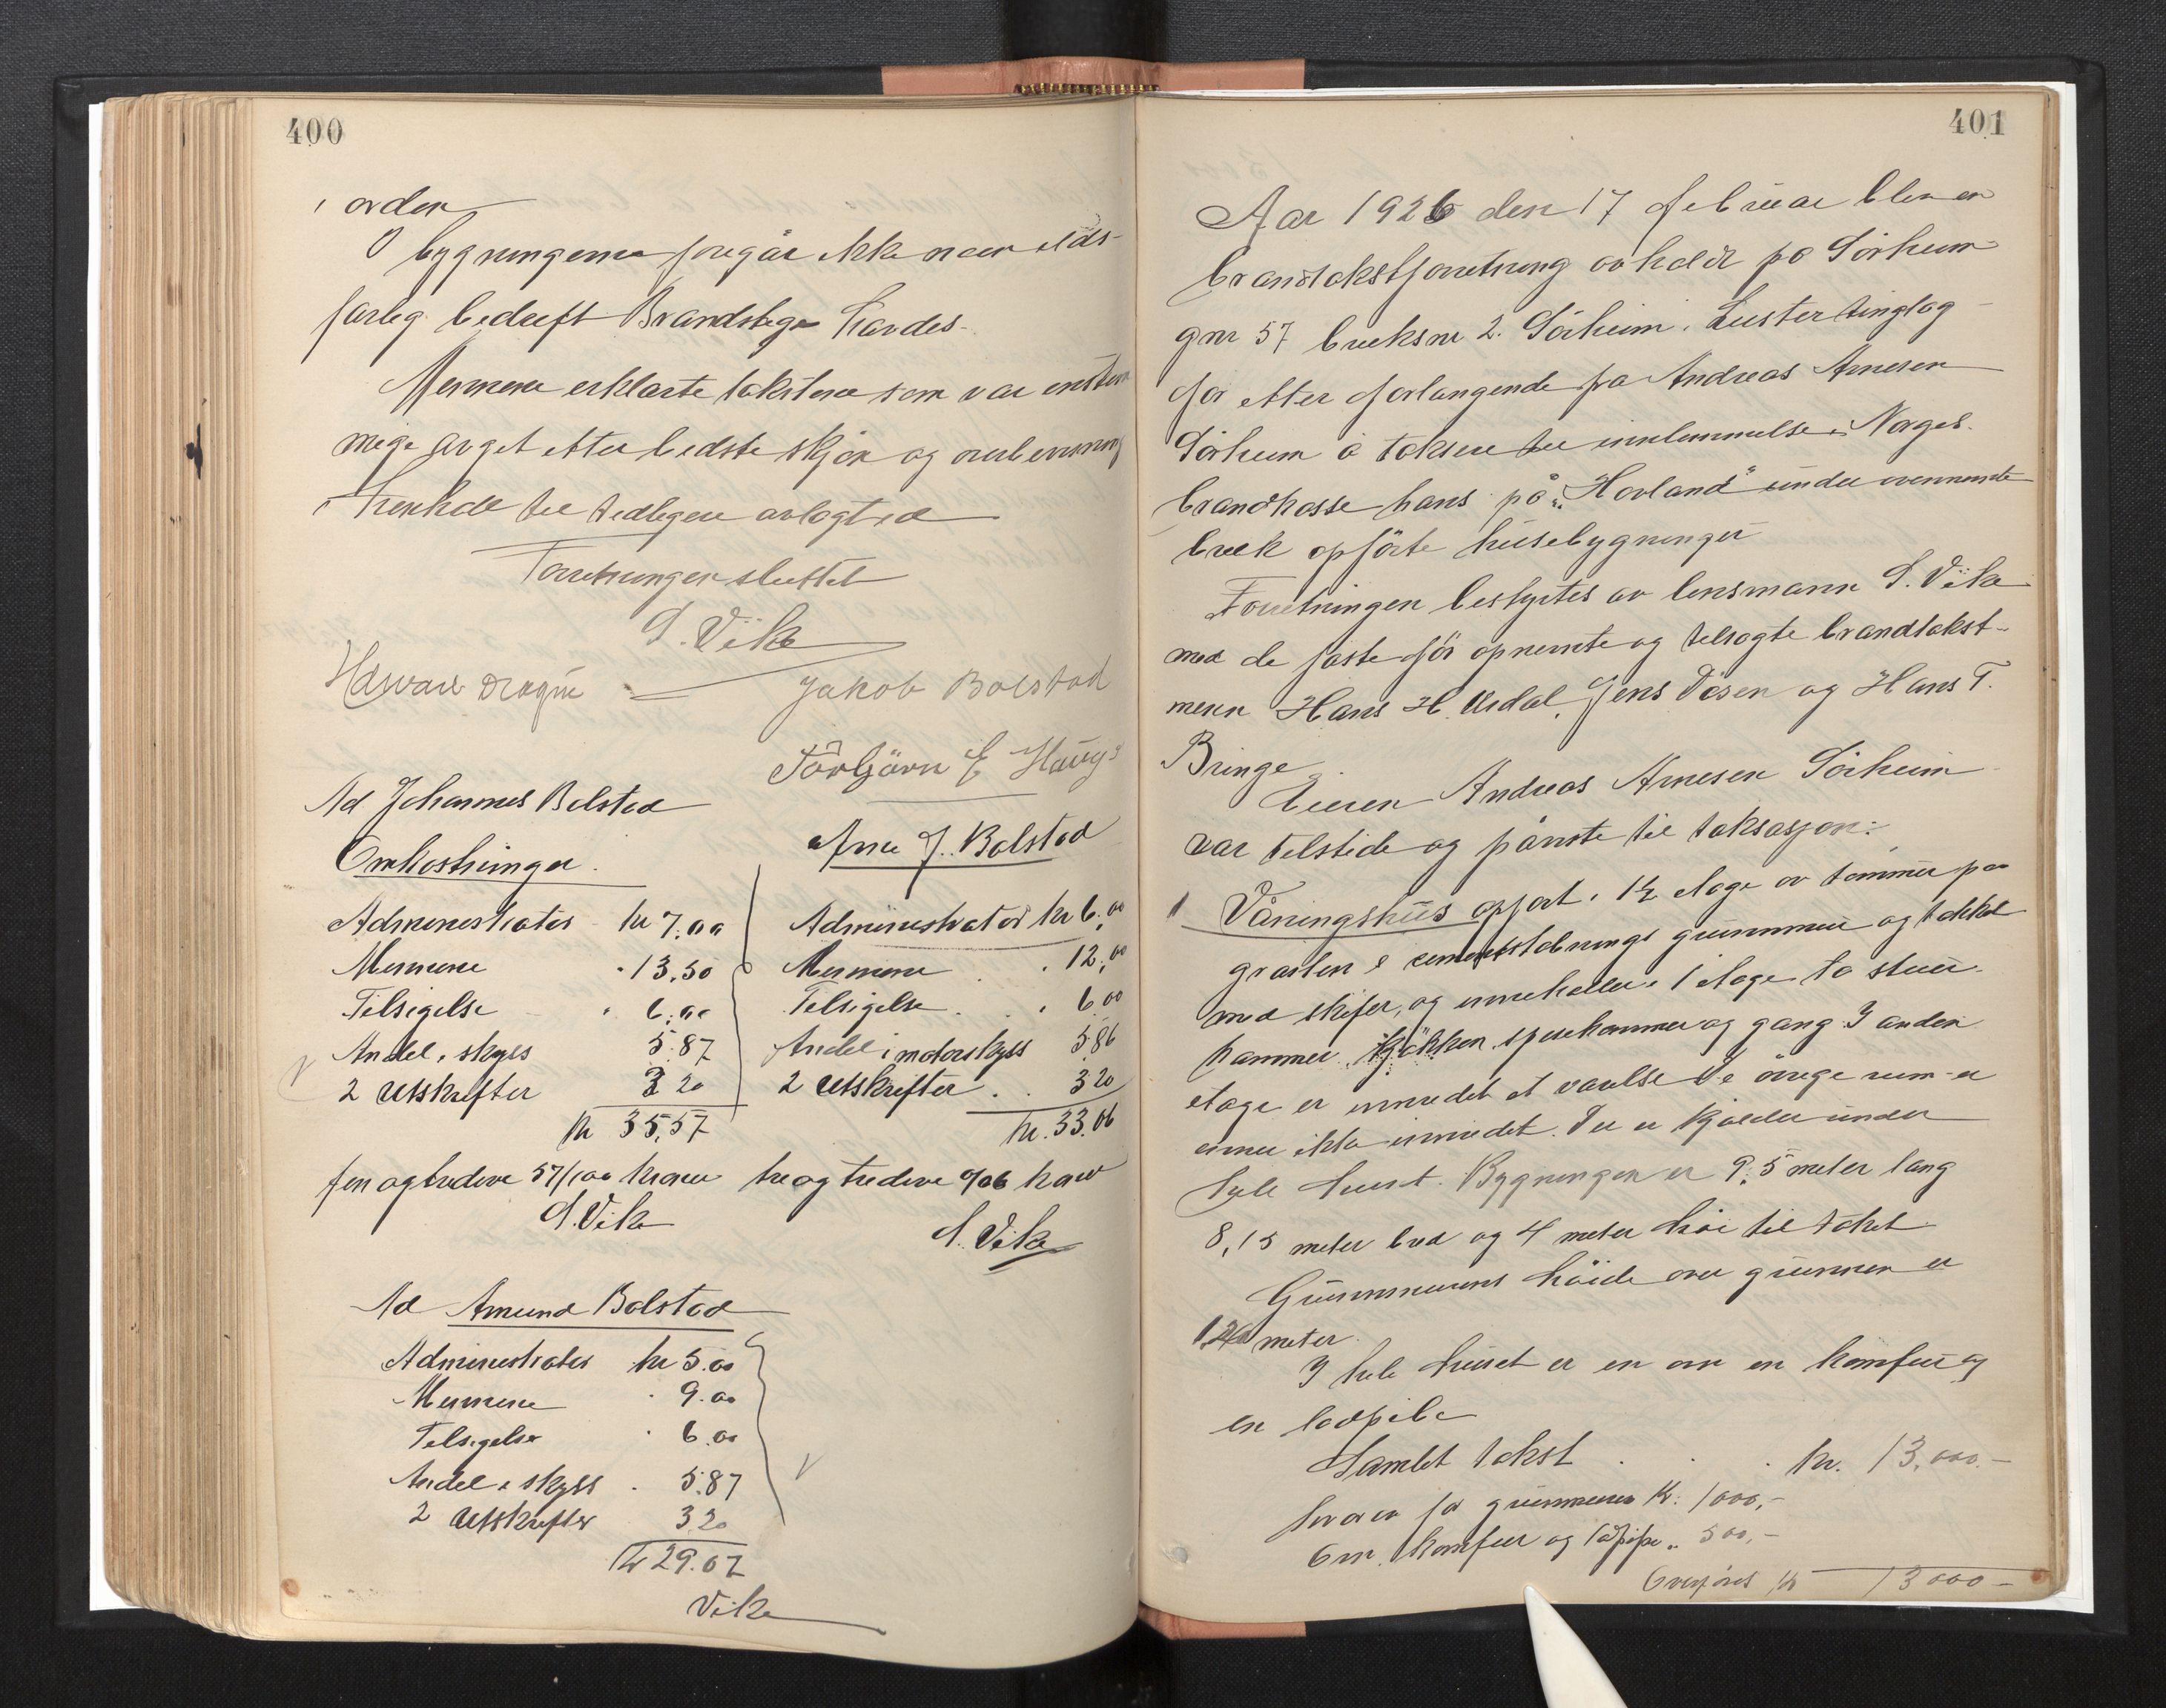 400
i orden
I bygningerne foregår ikke noen ilds-
farlig bedrift Brandstige havdes.
Mennene erklærte takstene som var enstem
mige avget etter bedste skjøn og overbevisning
i henhold til tidligere avlagt ed
Forretningen sluttet
S. Vike
Jakob Bolstad
Torbjörn E Haugs
Ad Johannes Bolstad
Omkostninger.
Administrator kr 7.00
Mennene " 13.50
Tilsigelse " 6.00
Andel i skyss 5.87
2 Utskrifter 3 20
kr 35.57
fem og tredive 57/100 kroner
S. Vike
Arne J. Bolstad
Administrator kr 6.00
Mennene . . 12.00
Tilsigelse . . 6.00
Andel i motorskyss 5.86
2 Utskrifter . . 3 20
kr. 33.06
tre og tredive 0/06 kroner
S. Vike
Ad Amund Bolstad
Administrator kr 5.00
Mennene " 9.00
Tilsigelse " 6.00
Andel i skyss . 5.87
2 Utskrifter 3 20
kr 29.07
Vike
401
Aar 1926 den 17 februar blev en
brandtakstforretning avholdt på Sörheim
gnr 57 bruksnr 2. Sörheim i Luster tinglag
for etter forlangende fra Andreas Arnesen
Sörheim å taksere til innlemmelse i Norges
brandkasse hans på "Hovland" under ovennevnte
bruk opförte husebygninger
Forretningen bestyrtes av lensmann S. Vike
med de faste för opnevnte og tilsagte brandtakst-
menn Hans H. Urdal, Jens Døsen og Hans T.
Bringe.
Eieren Andreas Arnesen Sörheim
var tilstede og påviste til taksasjon:
1 Våningshus opfört i 1½ etage av tømmer på
gråsten i cementstøbnings grunnmur og tekket
med skifer, og inneholder i 1 etage to stuer
kammer, kjökken, spisekammer og gang. I anden
etage er innredet et værelse De övrige rum er
ennu ikke innredet. Der er kjælder under
hele huset. Bygningen er 9,5 meter lang
8,15 meter bred og 4 meter höi til taket
Grunnmurens höide over grunnen er
1,20 meter.
I hele huset er en ovn en komfur og
en lodpibe
Samlet takst . . . kr. 13,000.-
hvorav for grunnmuren Kr: 1000,-
Ovn, komfur og lodpipe " 500,-
Overføres kr 13000-